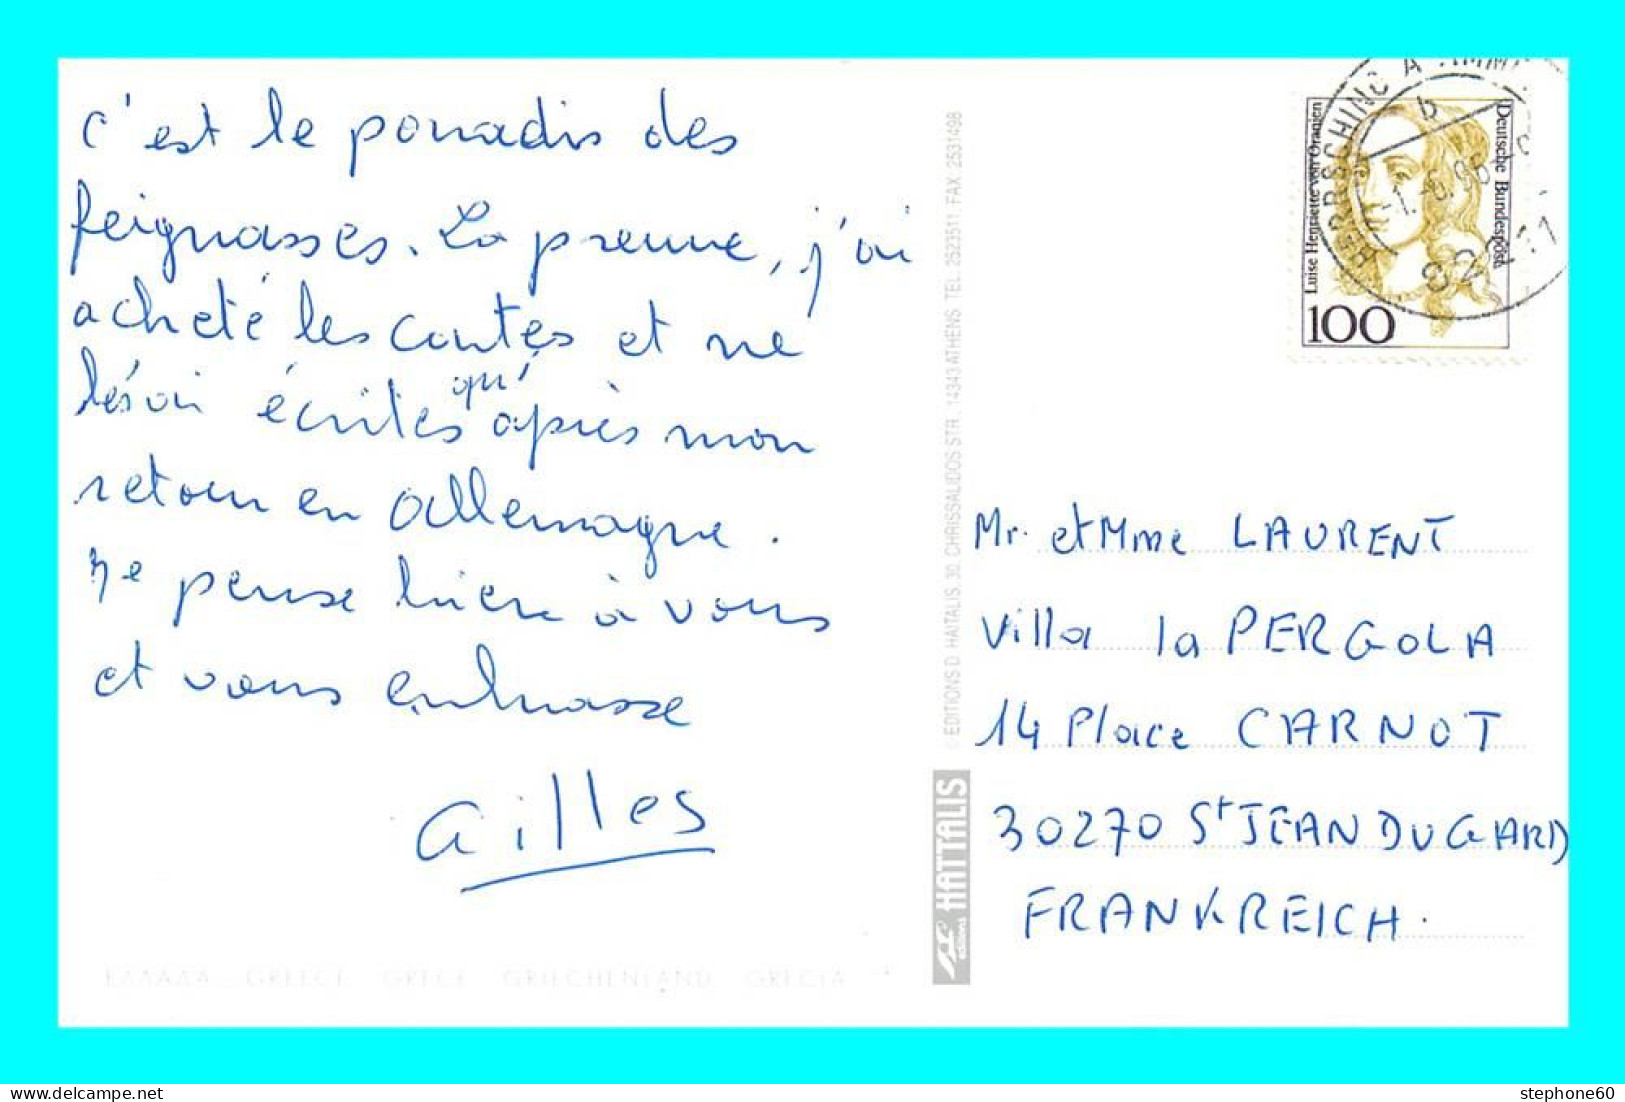 c'est le paradis des
feignasses. La preuve, j'ai
acheté les cartes et ne
les ai écrites qu'après mon
retour en Allemagne.
Je pense bien à vous
et vous embrasse
Gilles
ΕΛΛΑΔΑ GREECE GRECE GRIECHENLAND GRECIA
© EDITIONS D. HAITALIS, 30, CHRISSALIDOS STR. 14343 ATHENS TEL. 2523511, FAX. 2531498
éditions HAÏTALIS
HERRSCHING A AMM
b
-1.-6.96
82211
Luise Henriette von Oranien
Deutsche Bundespost
100
Mr. et Mme LAURENT
Villa la PERGOLA
14 Place CARNOT
30270 St JEAN DU GARD
FRANKREICH.
stephone60